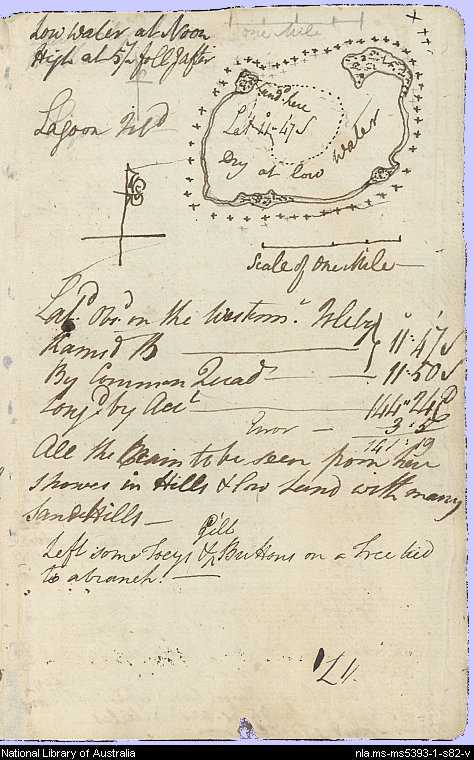 Low Water at Noon
High at 5½ foll.g after
One Mile
Lagoon Isl.d
Land.d here
Lat 11..47 S
Dry at low
Water
Scale of One Mile
Lat.d Obs.d on the Westerm.t Isl. by
Ramsd B — 11°..47' S
By Common Quad.t — 11..50 S
Long.d by Acc.t — 144"24
Error — 3:5
141:19
All the Main to be seen from here
shows in Hills & low Land with many
Sand Hills —
Left some Toeys & Gilt Buttons on a Tree tied
to a branch. —
National Library of Australia
nla.ms-ms5393-1-s82-v